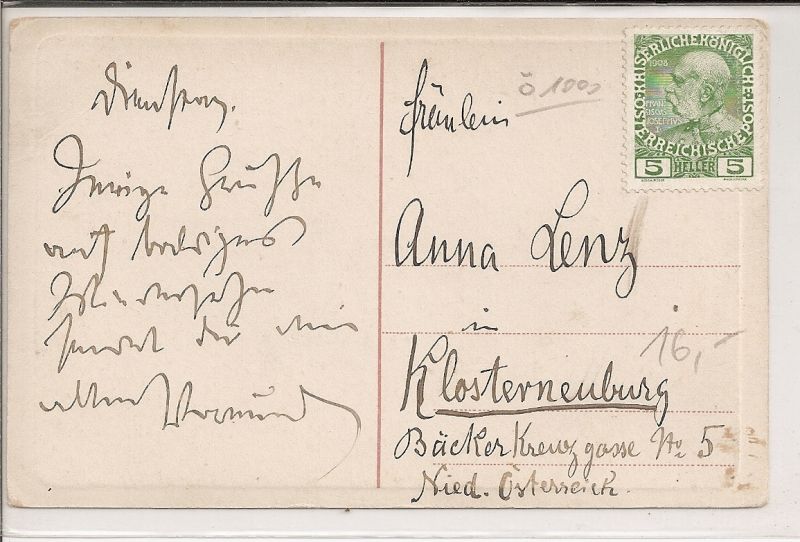 Dienstag.
Innige Grüsse
auf baldiges
Wiedersehn
sendet dir
alter
ö 1000
Fräulein
Anna Lenz
in
Klosterneuburg
Bäcker Kreuzgasse No 5
Nied. Österreich.
16,-
KAISERLICHE KÖNIGLICHE ÖSTERREICHISCHE POST
1908
FRAN
CISCUS
JOSEPHUS
I
5 HELLER 5